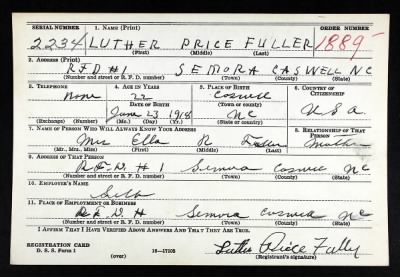 SERIAL NUMBER 1. NAME (Print) ORDER NUMBER
2234 LUTHER PRICE FULLER 1889
(First) (Middle) (Last)
2. ADDRESS (Print)
RFD #1 SEMORA CASWELL NC
(Number and street or R. F. D. number) (Town) (County) (State)
3. TELEPHONE 4. AGE IN YEARS 5. PLACE OF BIRTH 6. COUNTRY OF CITIZENSHIP
None 22
DATE OF BIRTH
June 23 1918 NC USA
(Exchange) (Number) (Mo.) (Day) (Yr.) (State or country)
7. NAME OF PERSON WHO WILL ALWAYS KNOW YOUR ADDRESS 8. RELATIONSHIP OF THAT PERSON
Mrs Ella R Fuller Mother
(Mr., Mrs., Miss) (First) (Middle) (Last)
9. ADDRESS OF THAT PERSON
R.F.D. # 1 Semora NC
(Number and street or R. F. D. number) (Town) (County) (State)
10. EMPLOYER'S NAME
Self
11. PLACE OF EMPLOYMENT OR BUSINESS
R.F.D. # Semora NC
(Number and street or R. F. D. number) (Town) (County) (State)
I AFFIRM THAT I HAVE VERIFIED ABOVE ANSWERS AND THAT THEY ARE TRUE.
REGISTRATION CARD
D. S. S. Form 1 16—17105 Luther Price Fuller
(over) (Registrant's signature)